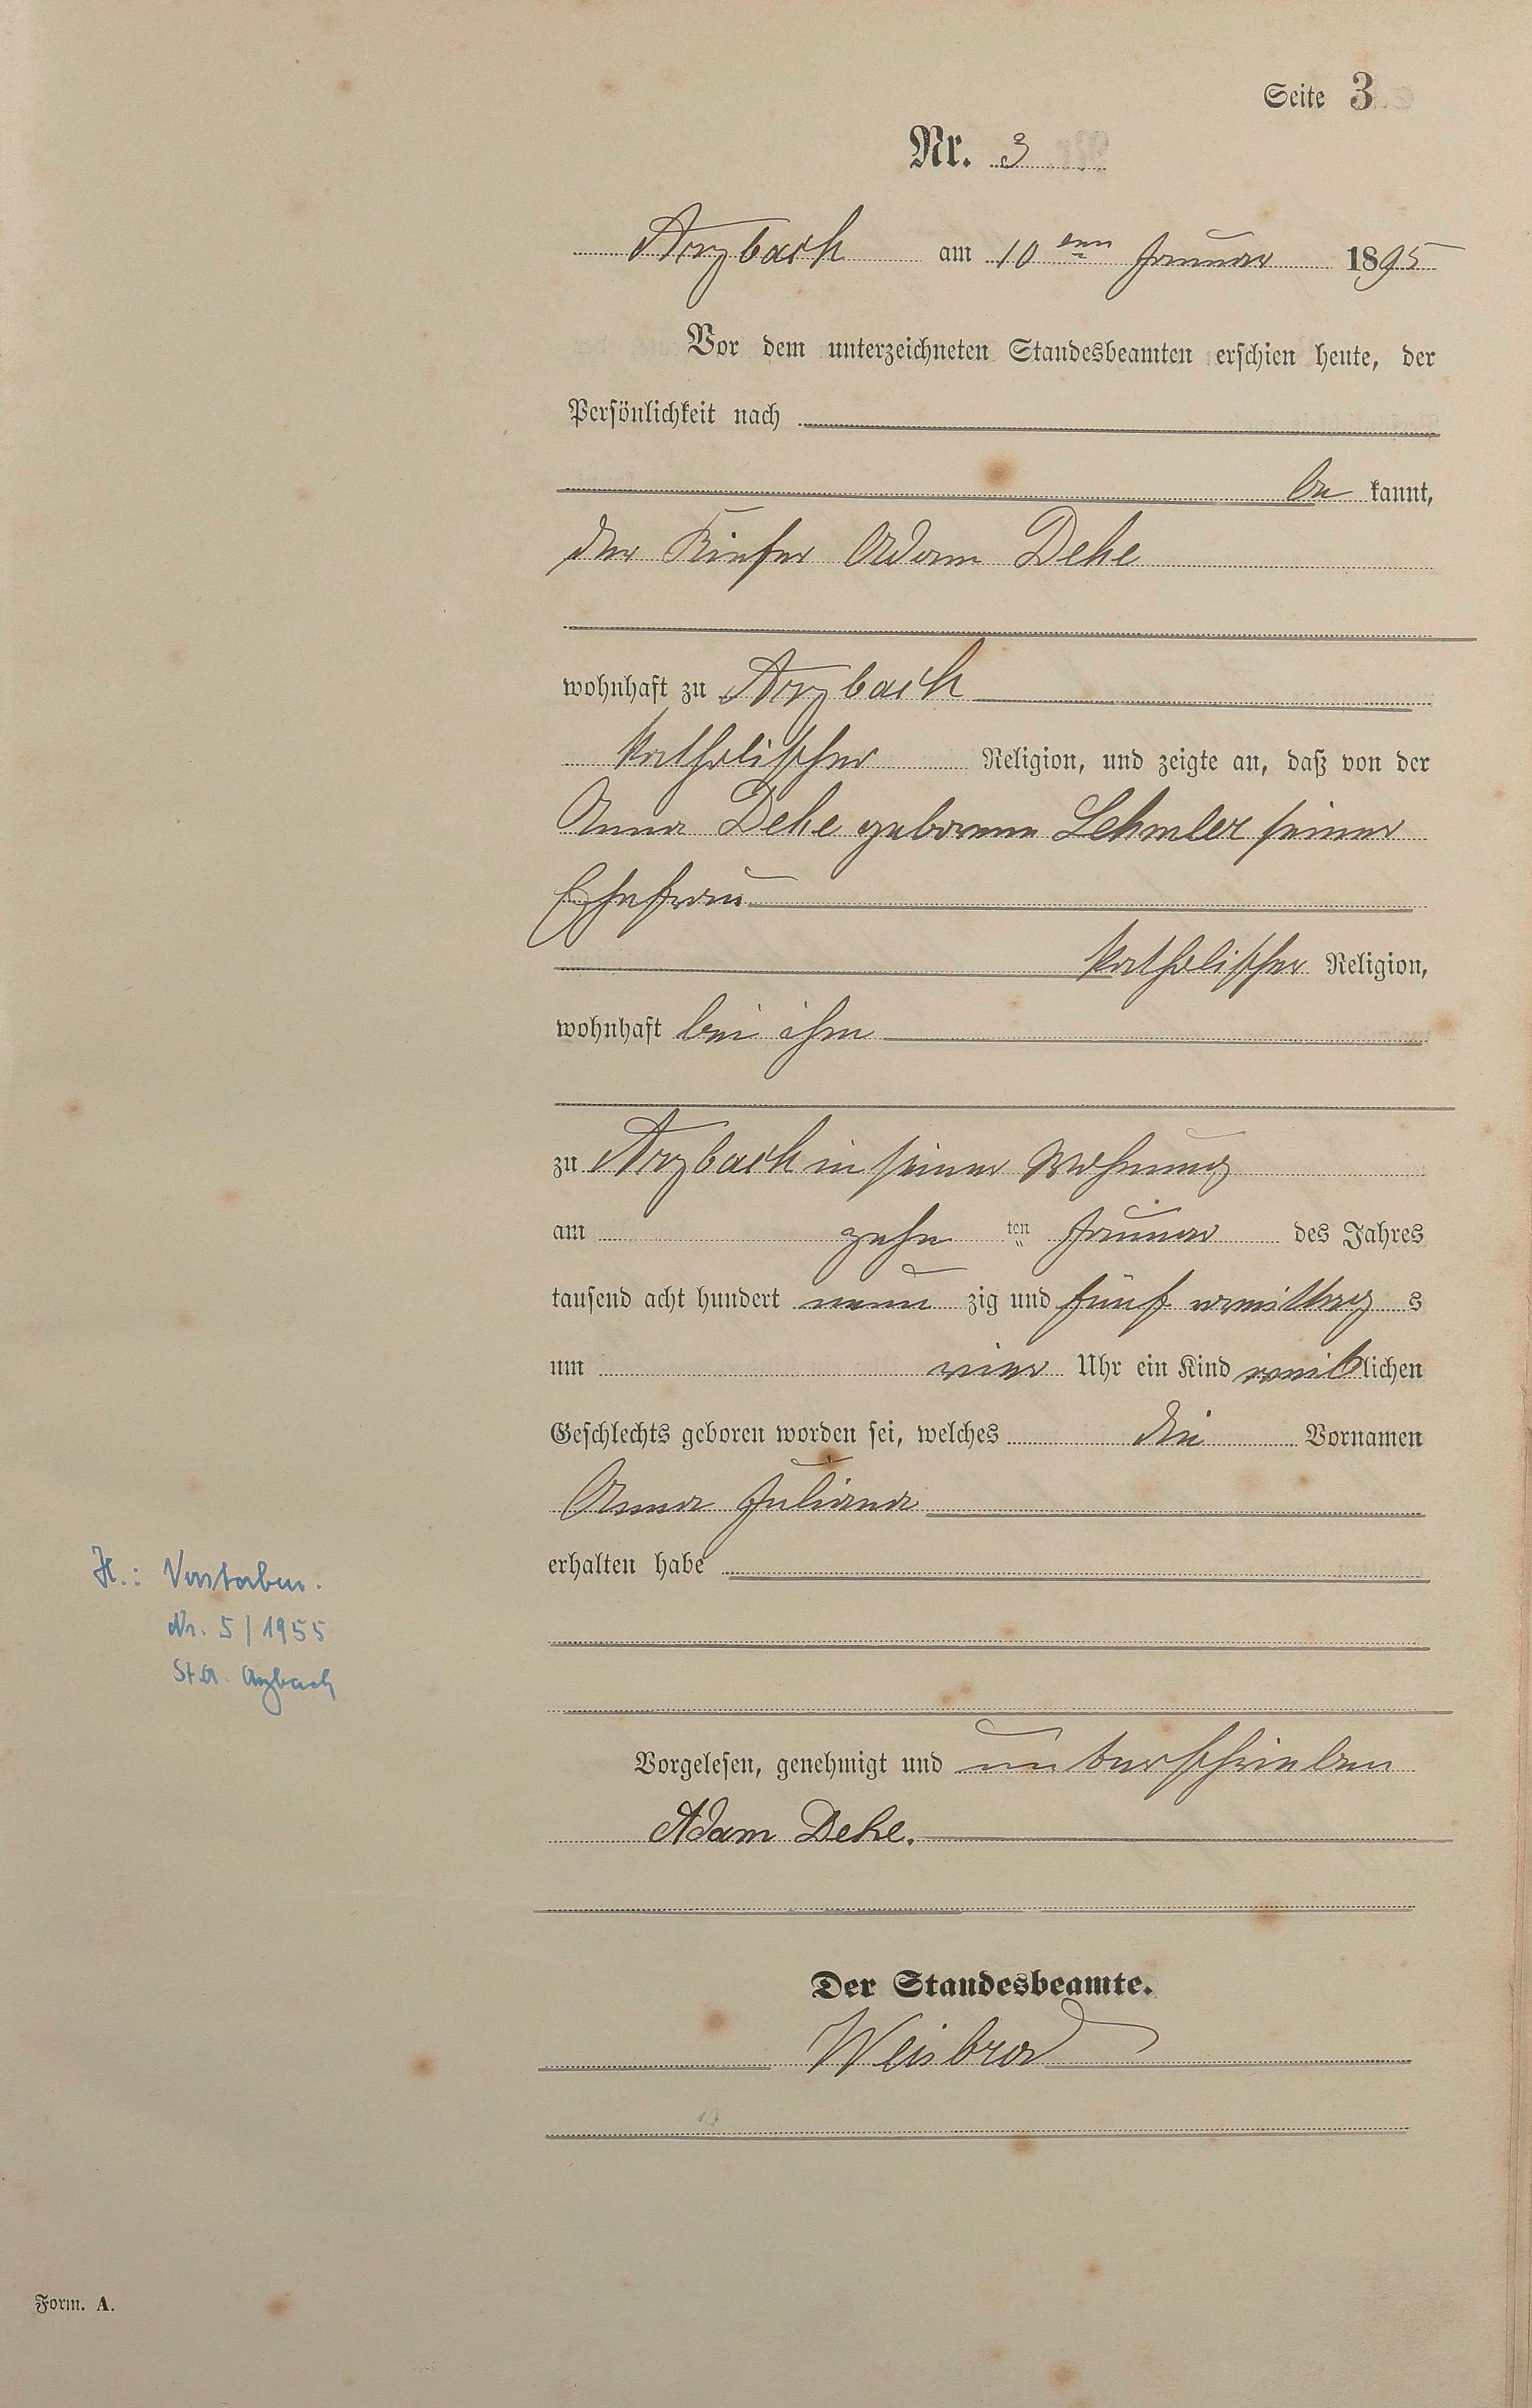 Seite 3
Nr. 3
Arzbach am 10ten Januar 1895
Vor dem unterzeichneten Standesbeamten erschien heute, der
Persönlichkeit nach
be kannt,
der Küfer Adam Dehe
wohnhaft zu Arzbach
katholischer Religion, und zeigte an, daß von der
Anna Dehe geborene Lehmler seiner
Ehefrau
katholischer Religion,
wohnhaft bei ihm
zu Arzbach in seiner Wohnung
am zehn ten Januar des Jahres
tausend acht hundert neun zig und fünf vormittag s
um vier Uhr ein Kind weiblichen
Geschlechts geboren worden sei, welches die Vornamen
Anna Juliana
erhalten habe
H.: Verstorben.
Nr. 5/1955
St.A. Arzbach
Vorgelesen, genehmigt und unterschrieben
Adam Dehe.
Der Standesbeamte.
Weisbrod
Form. A.